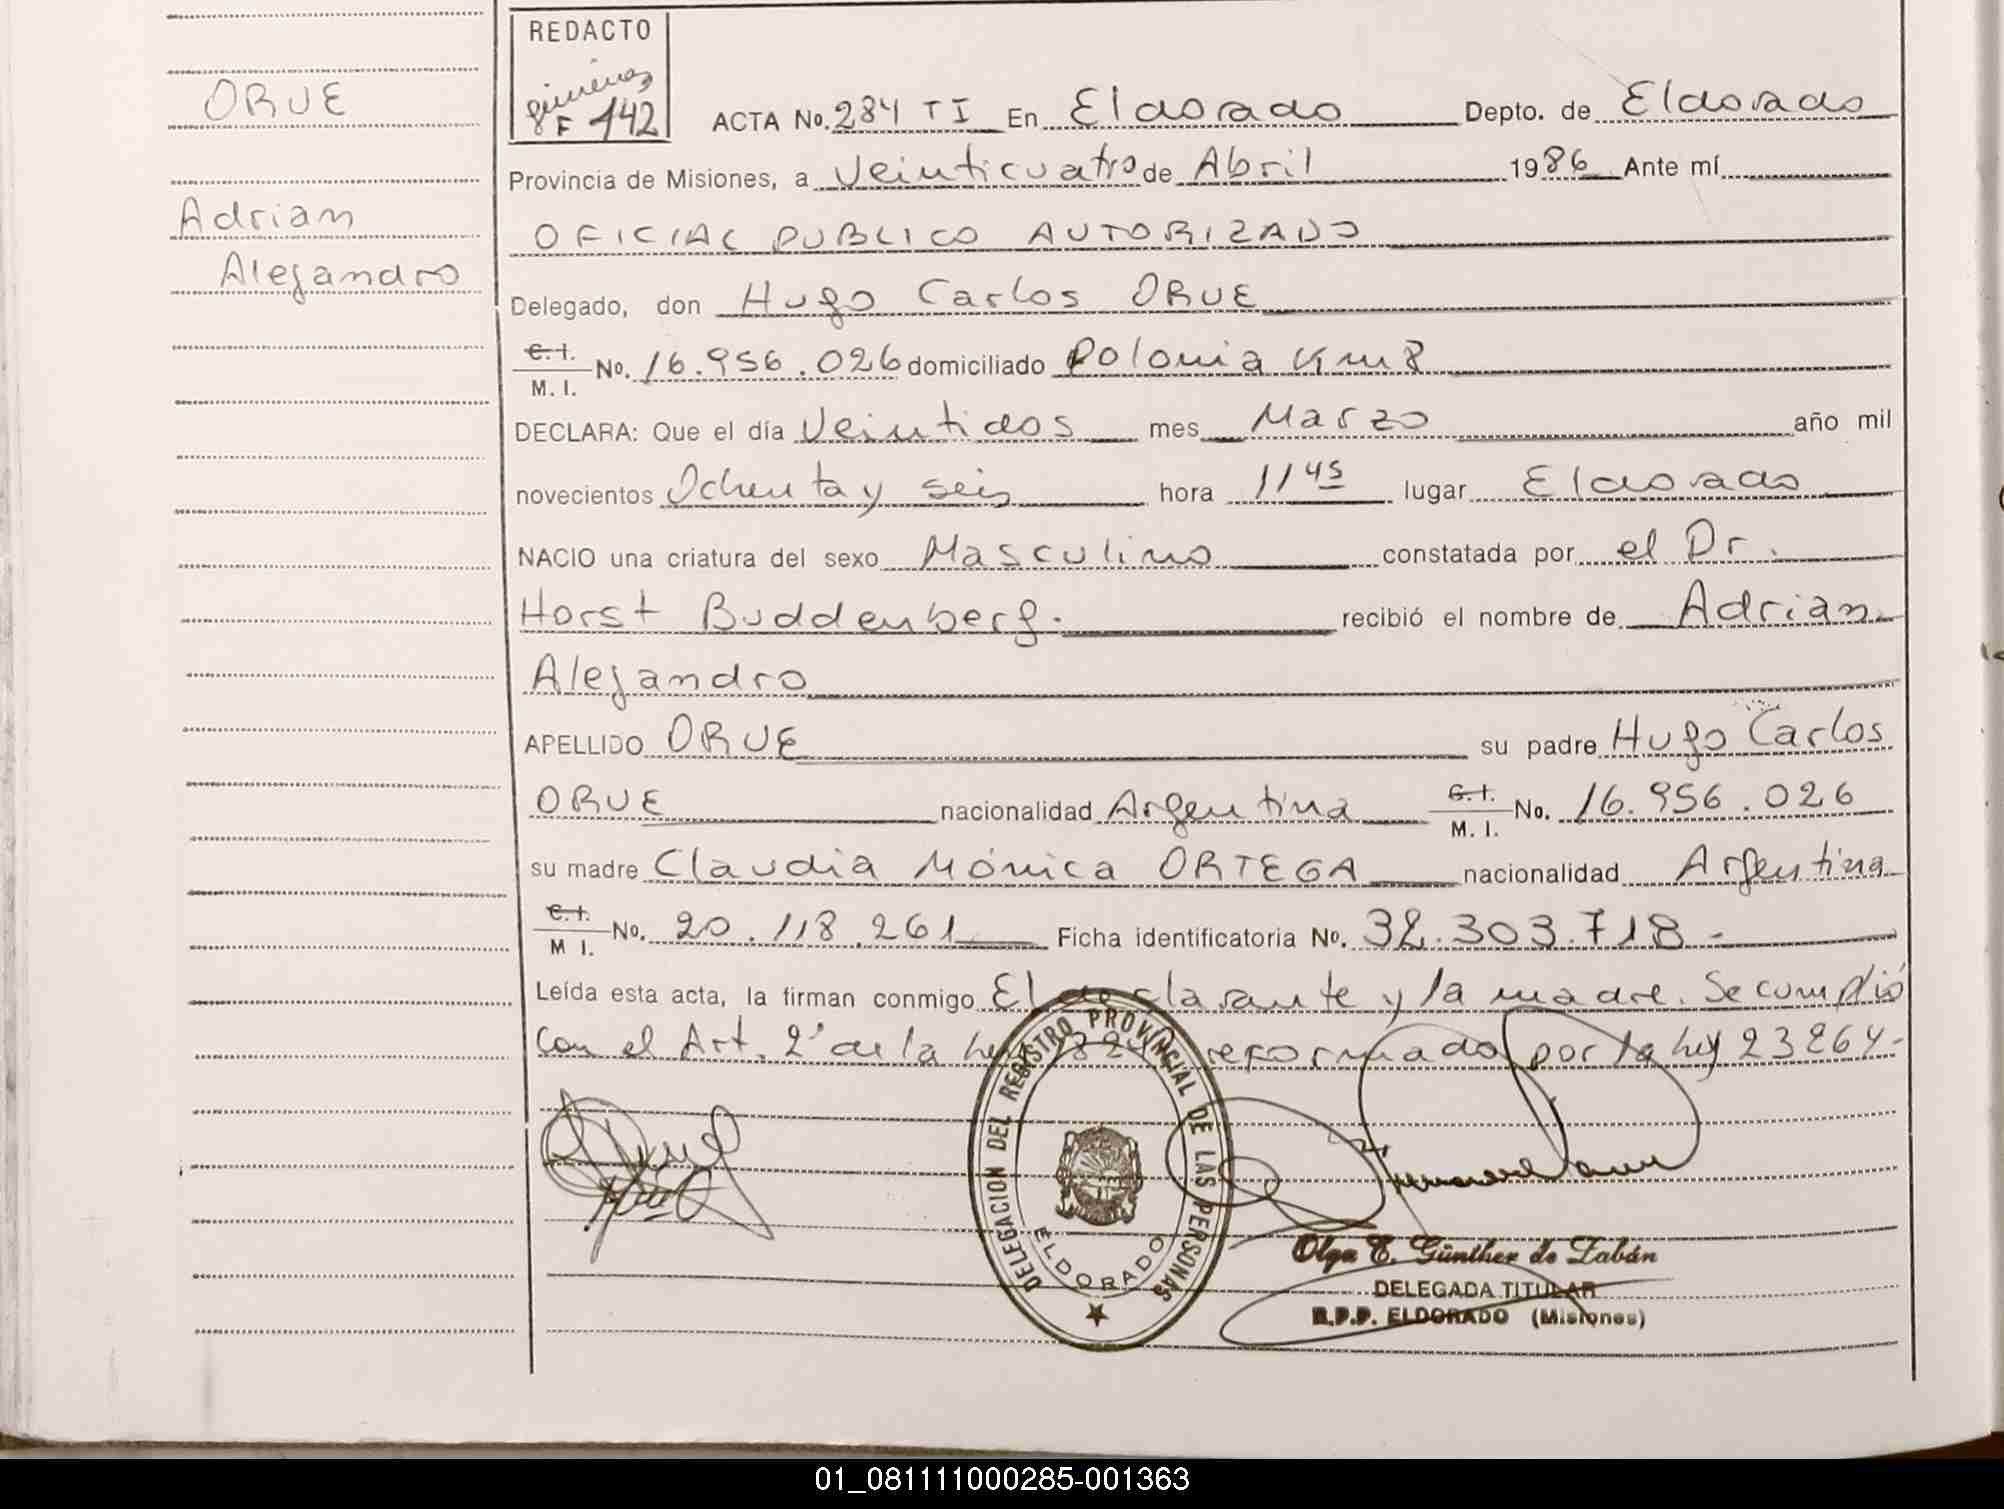 REDACTO
Giménez
F 142
ORUE
Adrian
Alejandro
ACTA No. 284 TI En Eldorado Depto. de Eldorado
Provincia de Misiones, a Veinticuatro de Abril 1986 Ante mí
OFICIAL PUBLICO AUTORIZADO
Delegado, don Hugo Carlos ORUE
C. I.
M. I. No. 16.956.026 domiciliado Polonia Km 8
DECLARA: Que el día Veintidos mes Marzo año mil
novecientos Ochenta y seis hora 11 45 lugar Eldorado
NACIO una criatura del sexo Masculino constatada por el Dr.
Horst Buddenberg. recibió el nombre de Adrian
Alejandro
APELLIDO ORUE su padre Hugo Carlos
ORUE nacionalidad Argentina C. I. M. I. No. 16.956.026
su madre Claudia Mónica ORTEGA nacionalidad Argentina
C. I.
M I. No. 20.118.261 Ficha identificatoria No. 32.303.718-
Leída esta acta, la firman conmigo El declarante y la madre. Se cumplió
con el Art. 2° de la Ley reformado por la Ley 23264-
DELEGACION DEL REGISTRO PROVINCIAL DE LAS PERSONAS
ELDORADO
Olga E. Günther de Zabán
DELEGADA TITULAR
R.P.P. ELDORADO (Misiones)
01_081111000285-001363